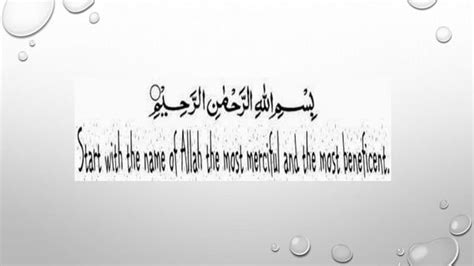 بِسْمِ اللهِ الرَّحْمٰنِ الرَّحِيْمِ
Start with the name of Allah the most merciful and the most beneficent.